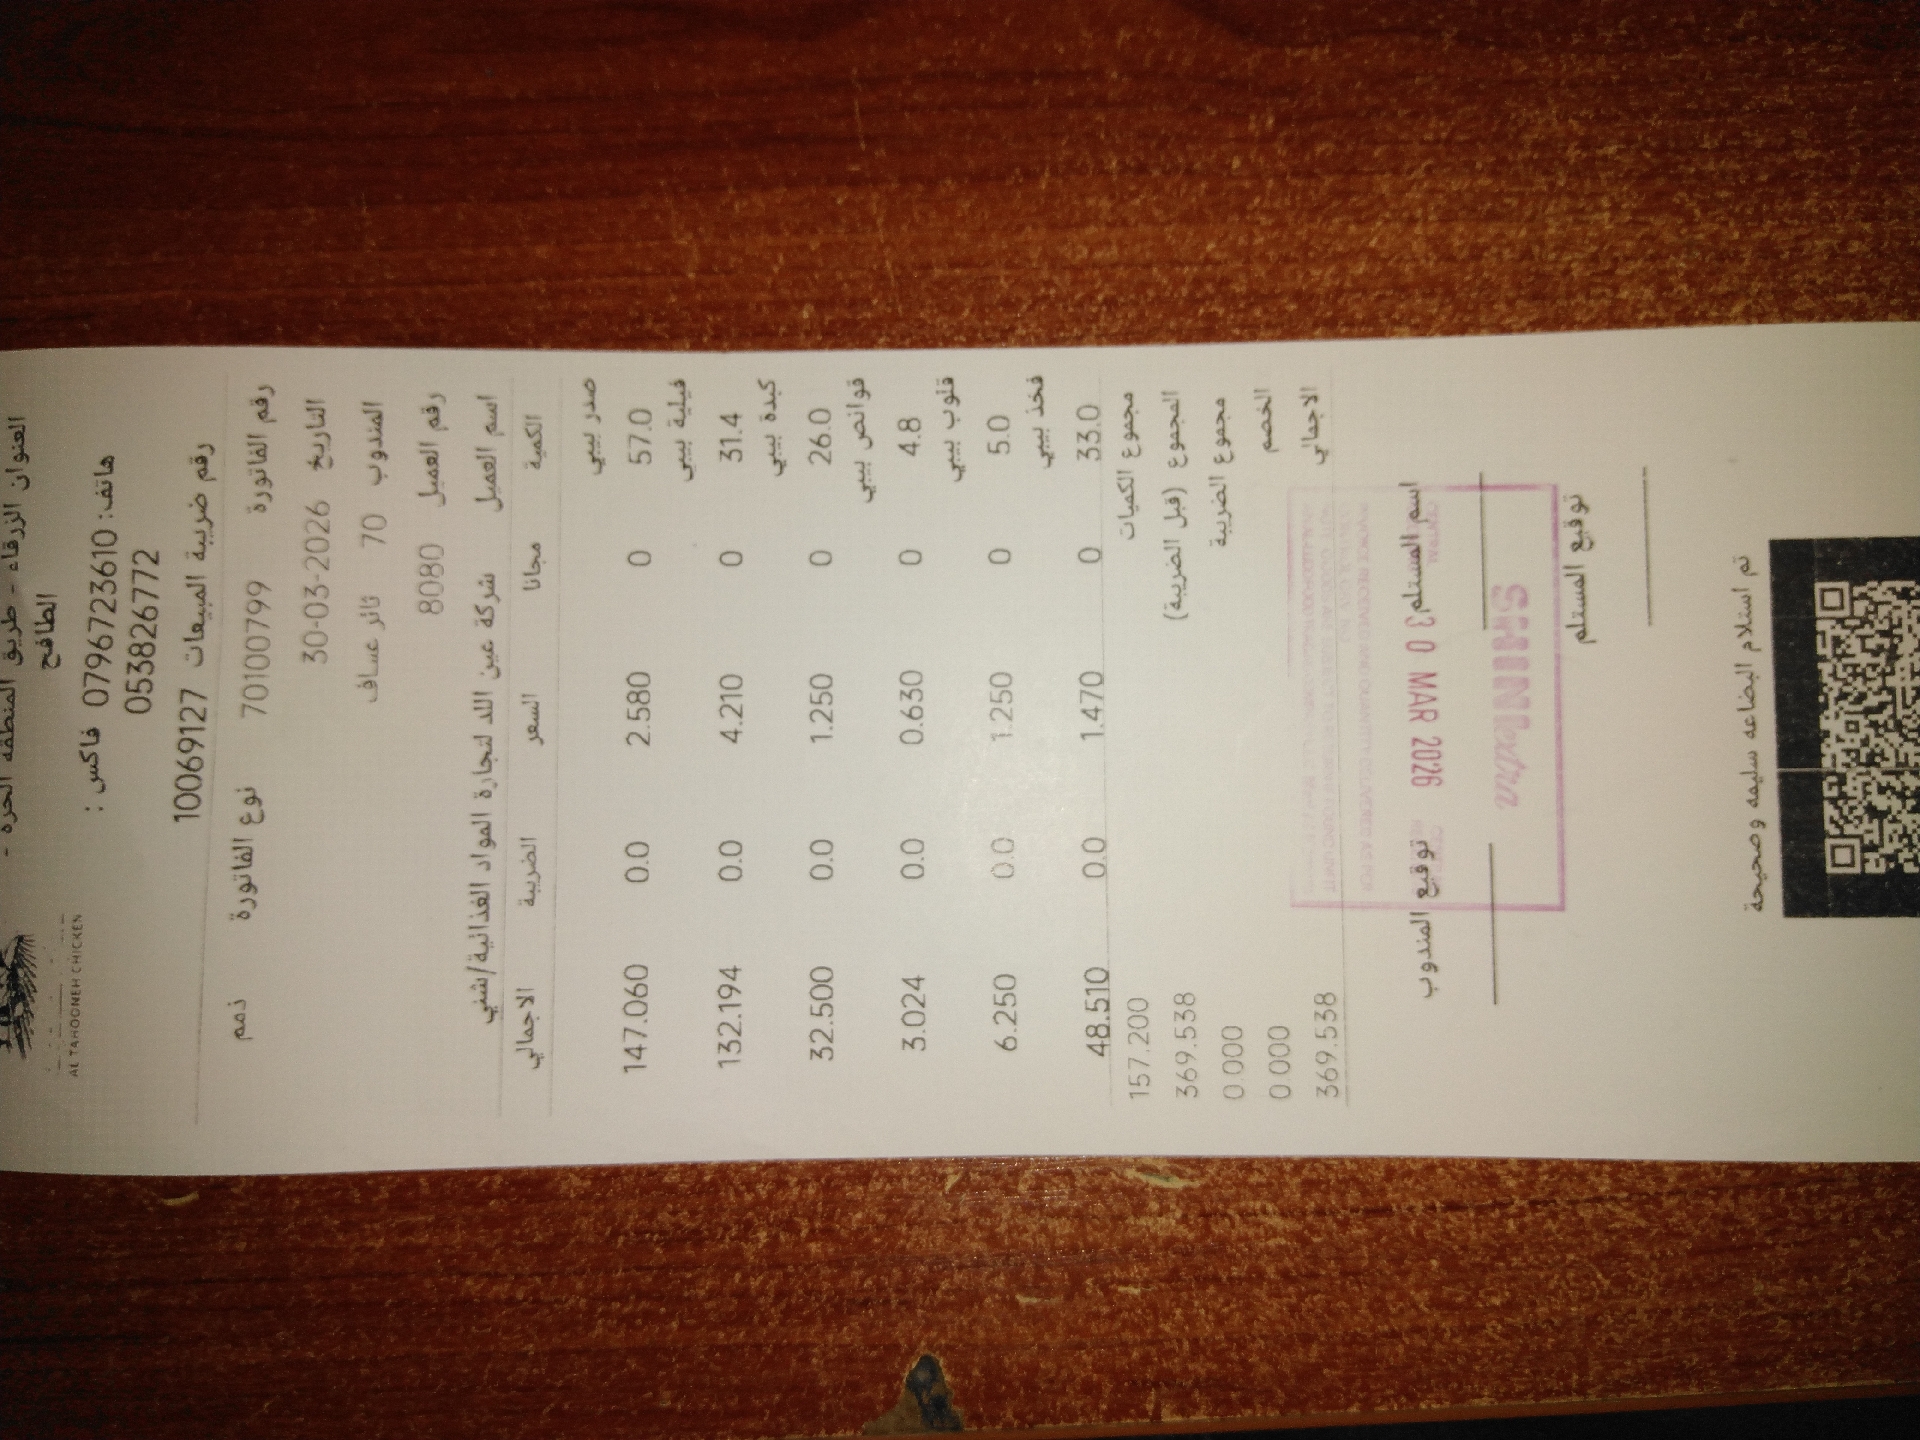 AL TAHOONEH CHICKEN
العنوان الزرقاء - طريق المنطقه الحرة -
الطافح
هاتف: 0796723610 فاكس :
053826772
رقم ضريبة المبيعات 10069127
رقم الفاتورة 70100799 نوع الفاتورة ذمم
التاريخ 30-03-2026
المندوب 70 ثائر عساف
رقم العميل 8080
اسم العميل شركة عين اللد لتجارة المواد الغذائية/شني
الكمية مجانا السعر الضريبة الاجمالي
صدر بيبي
57.0 0 2.580 0.0 147.060
فيلية بيبي
31.4 0 4.210 0.0 132.194
كبدة بيبي
26.0 0 1.250 0.0 32.500
قوانص بيبي
4.8 0 0.630 0.0 3.024
قلوب بيبي
5.0 0 1.250 0.0 6.250
فخذ بيبي
33.0 0 1.470 0.0 48.510
مجموع الكميات 157.200
المجموع (قبل الضريبة) 369.538
مجموع الضريبة 0.000
الخصم 0.000
الاجمالي 369.538
اسم المستلم توقيع المندوب
30 MAR 2026
SHINI extra
توقيع المستلم
تم استلام البضاعه سليمه وصحيحة